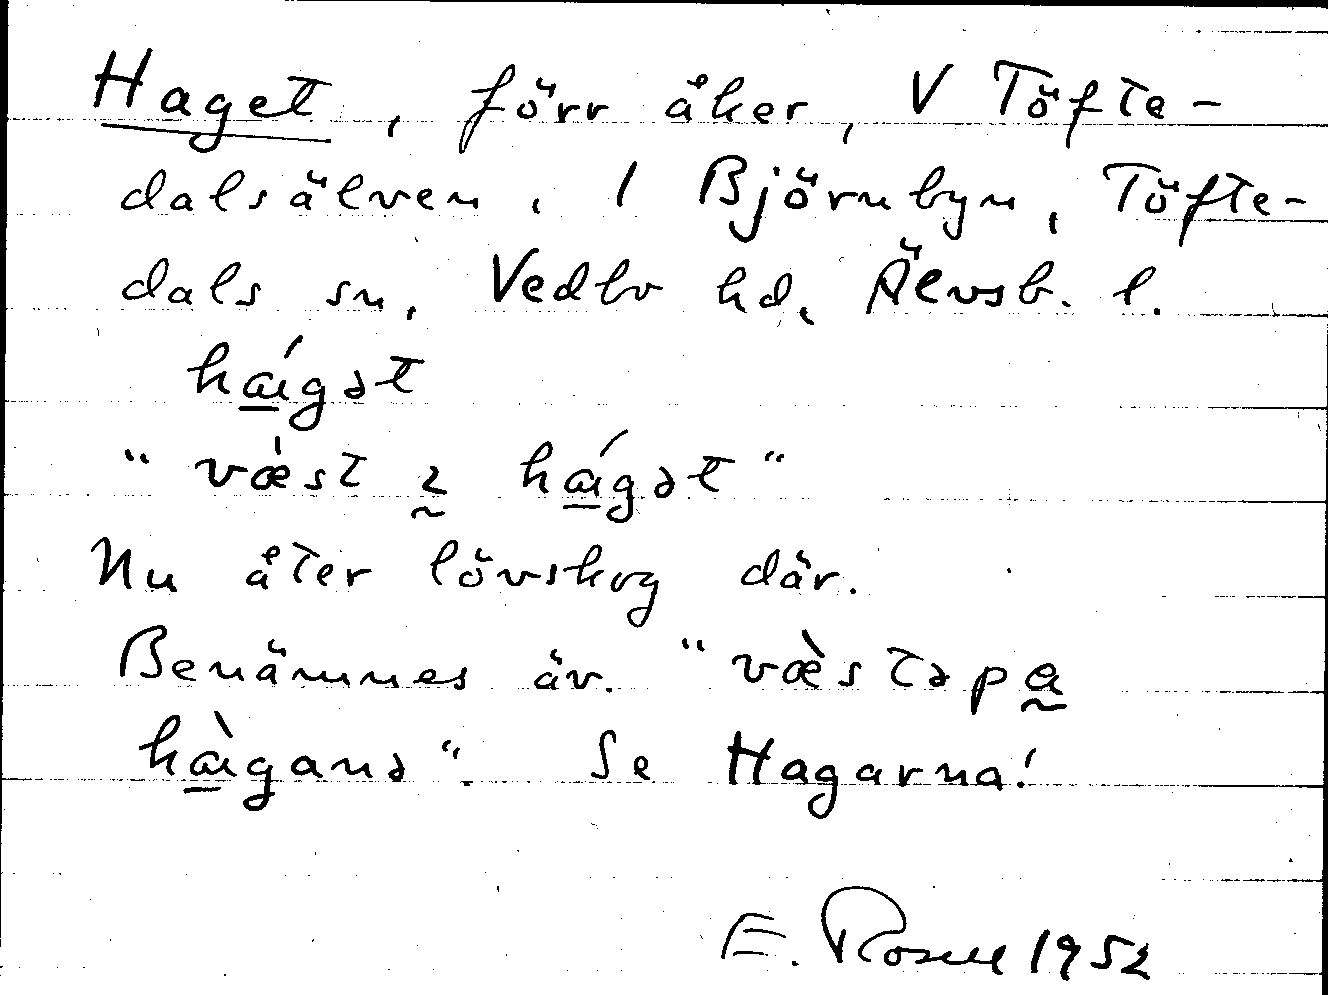 Haget, förr åker, V Töfte-
dalsälven, 1 Björnbyn, Töfte-
dals sn, Vedbo hd, Älvsb. l.
há̱gət
"væ̀st ɩ̰ há̱gət"
Nu åter lövskog där.
Benämnes äv. "væ̀stəpa̰
hà̱ganə". Se Hagarna!
E. Rosell 1952